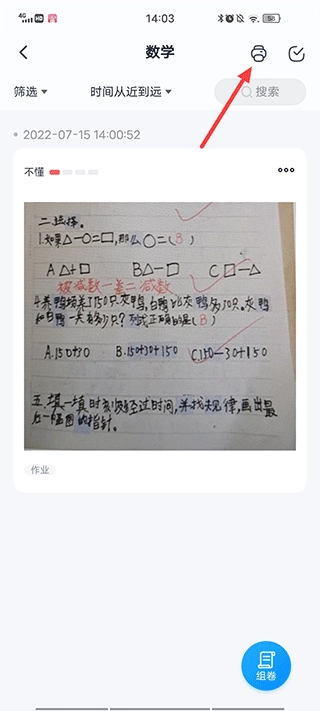 4G HD 14:03 58
数学
筛选 时间从近到远 搜索
2022-07-15 14:00:52
不懂
二、选择。
1.如果△-○=□,那么○=(B)
A △+□ B△-□ C □-△
被减数-差=减数
4.养鸭场养了150只灰鸭,白鸭比灰鸭多30只。灰鸭
和白鸭一共有多少只?列式正确的是(B)
A.150+30 B.150+30+150 C.150-30+150
五、填一填时刻或经过时间,并找规律,画出最
后一幅图的指针。
作业
组卷